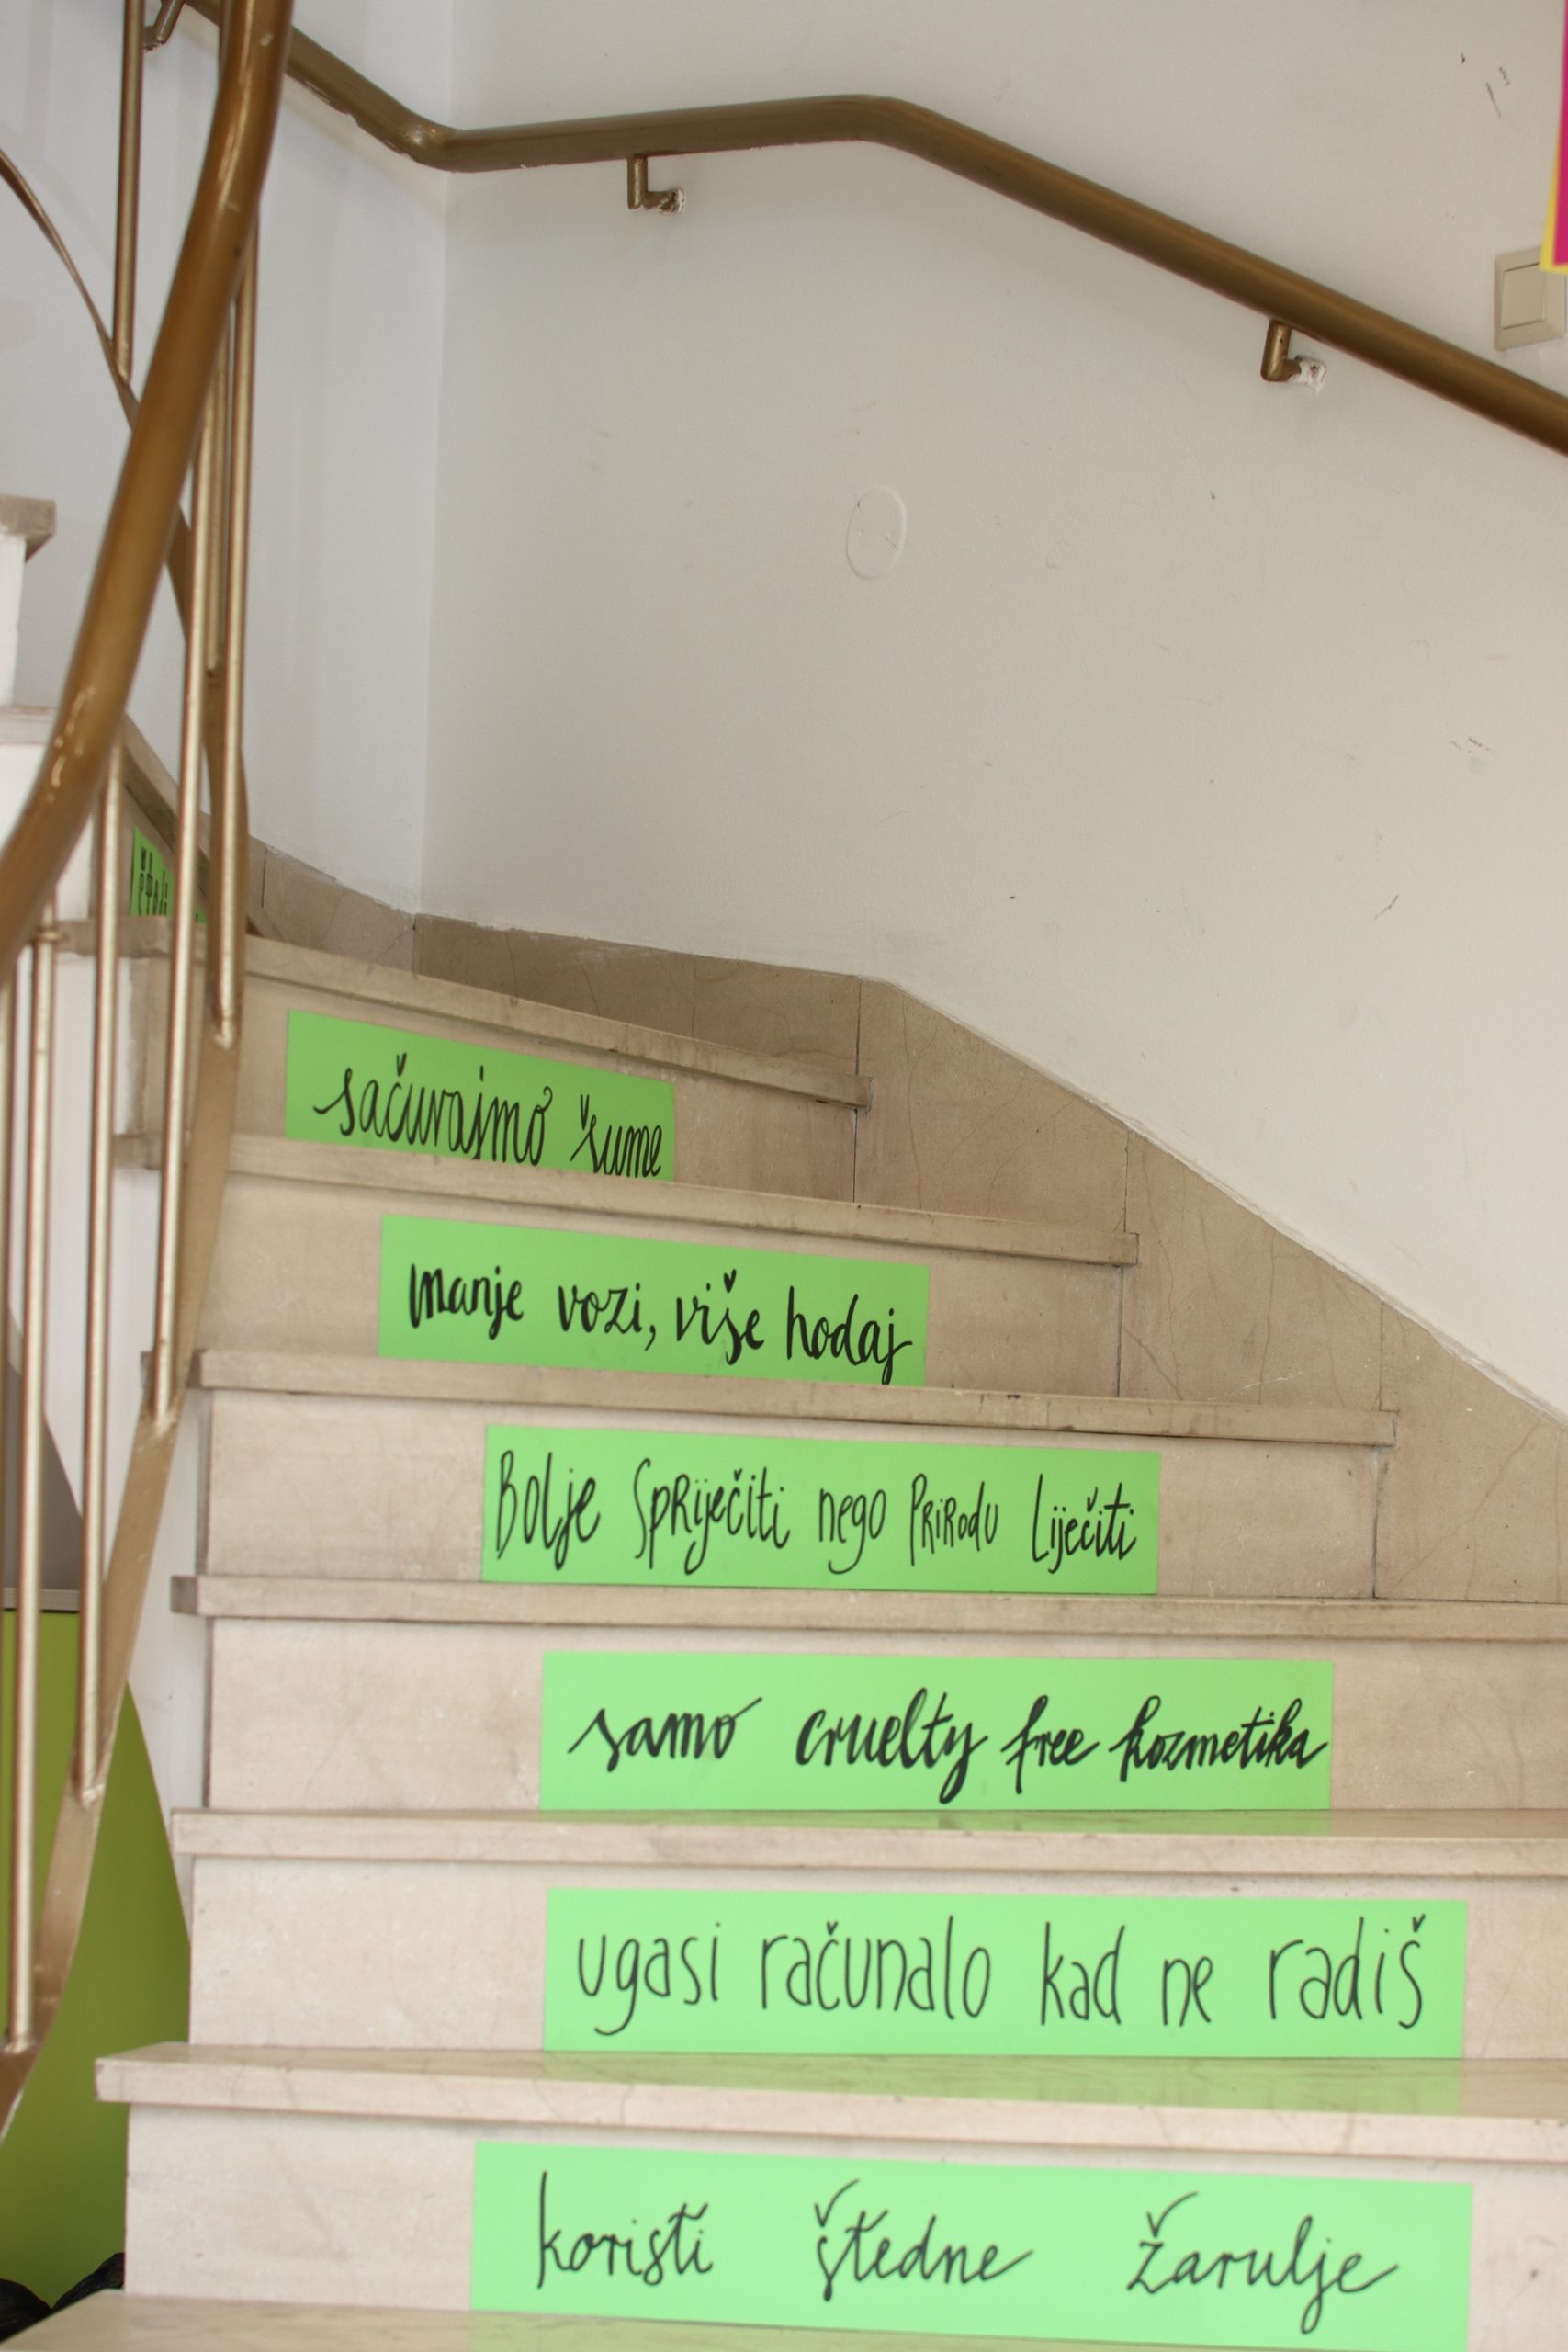 sačuvajmo šume
manje vozi, više hodaj
Bolje SpRiječiti nego PRiRodu Liječiti
samo cruelty free kozmetika
ugasi računalo kad ne radiš
koristi štedne žarulje